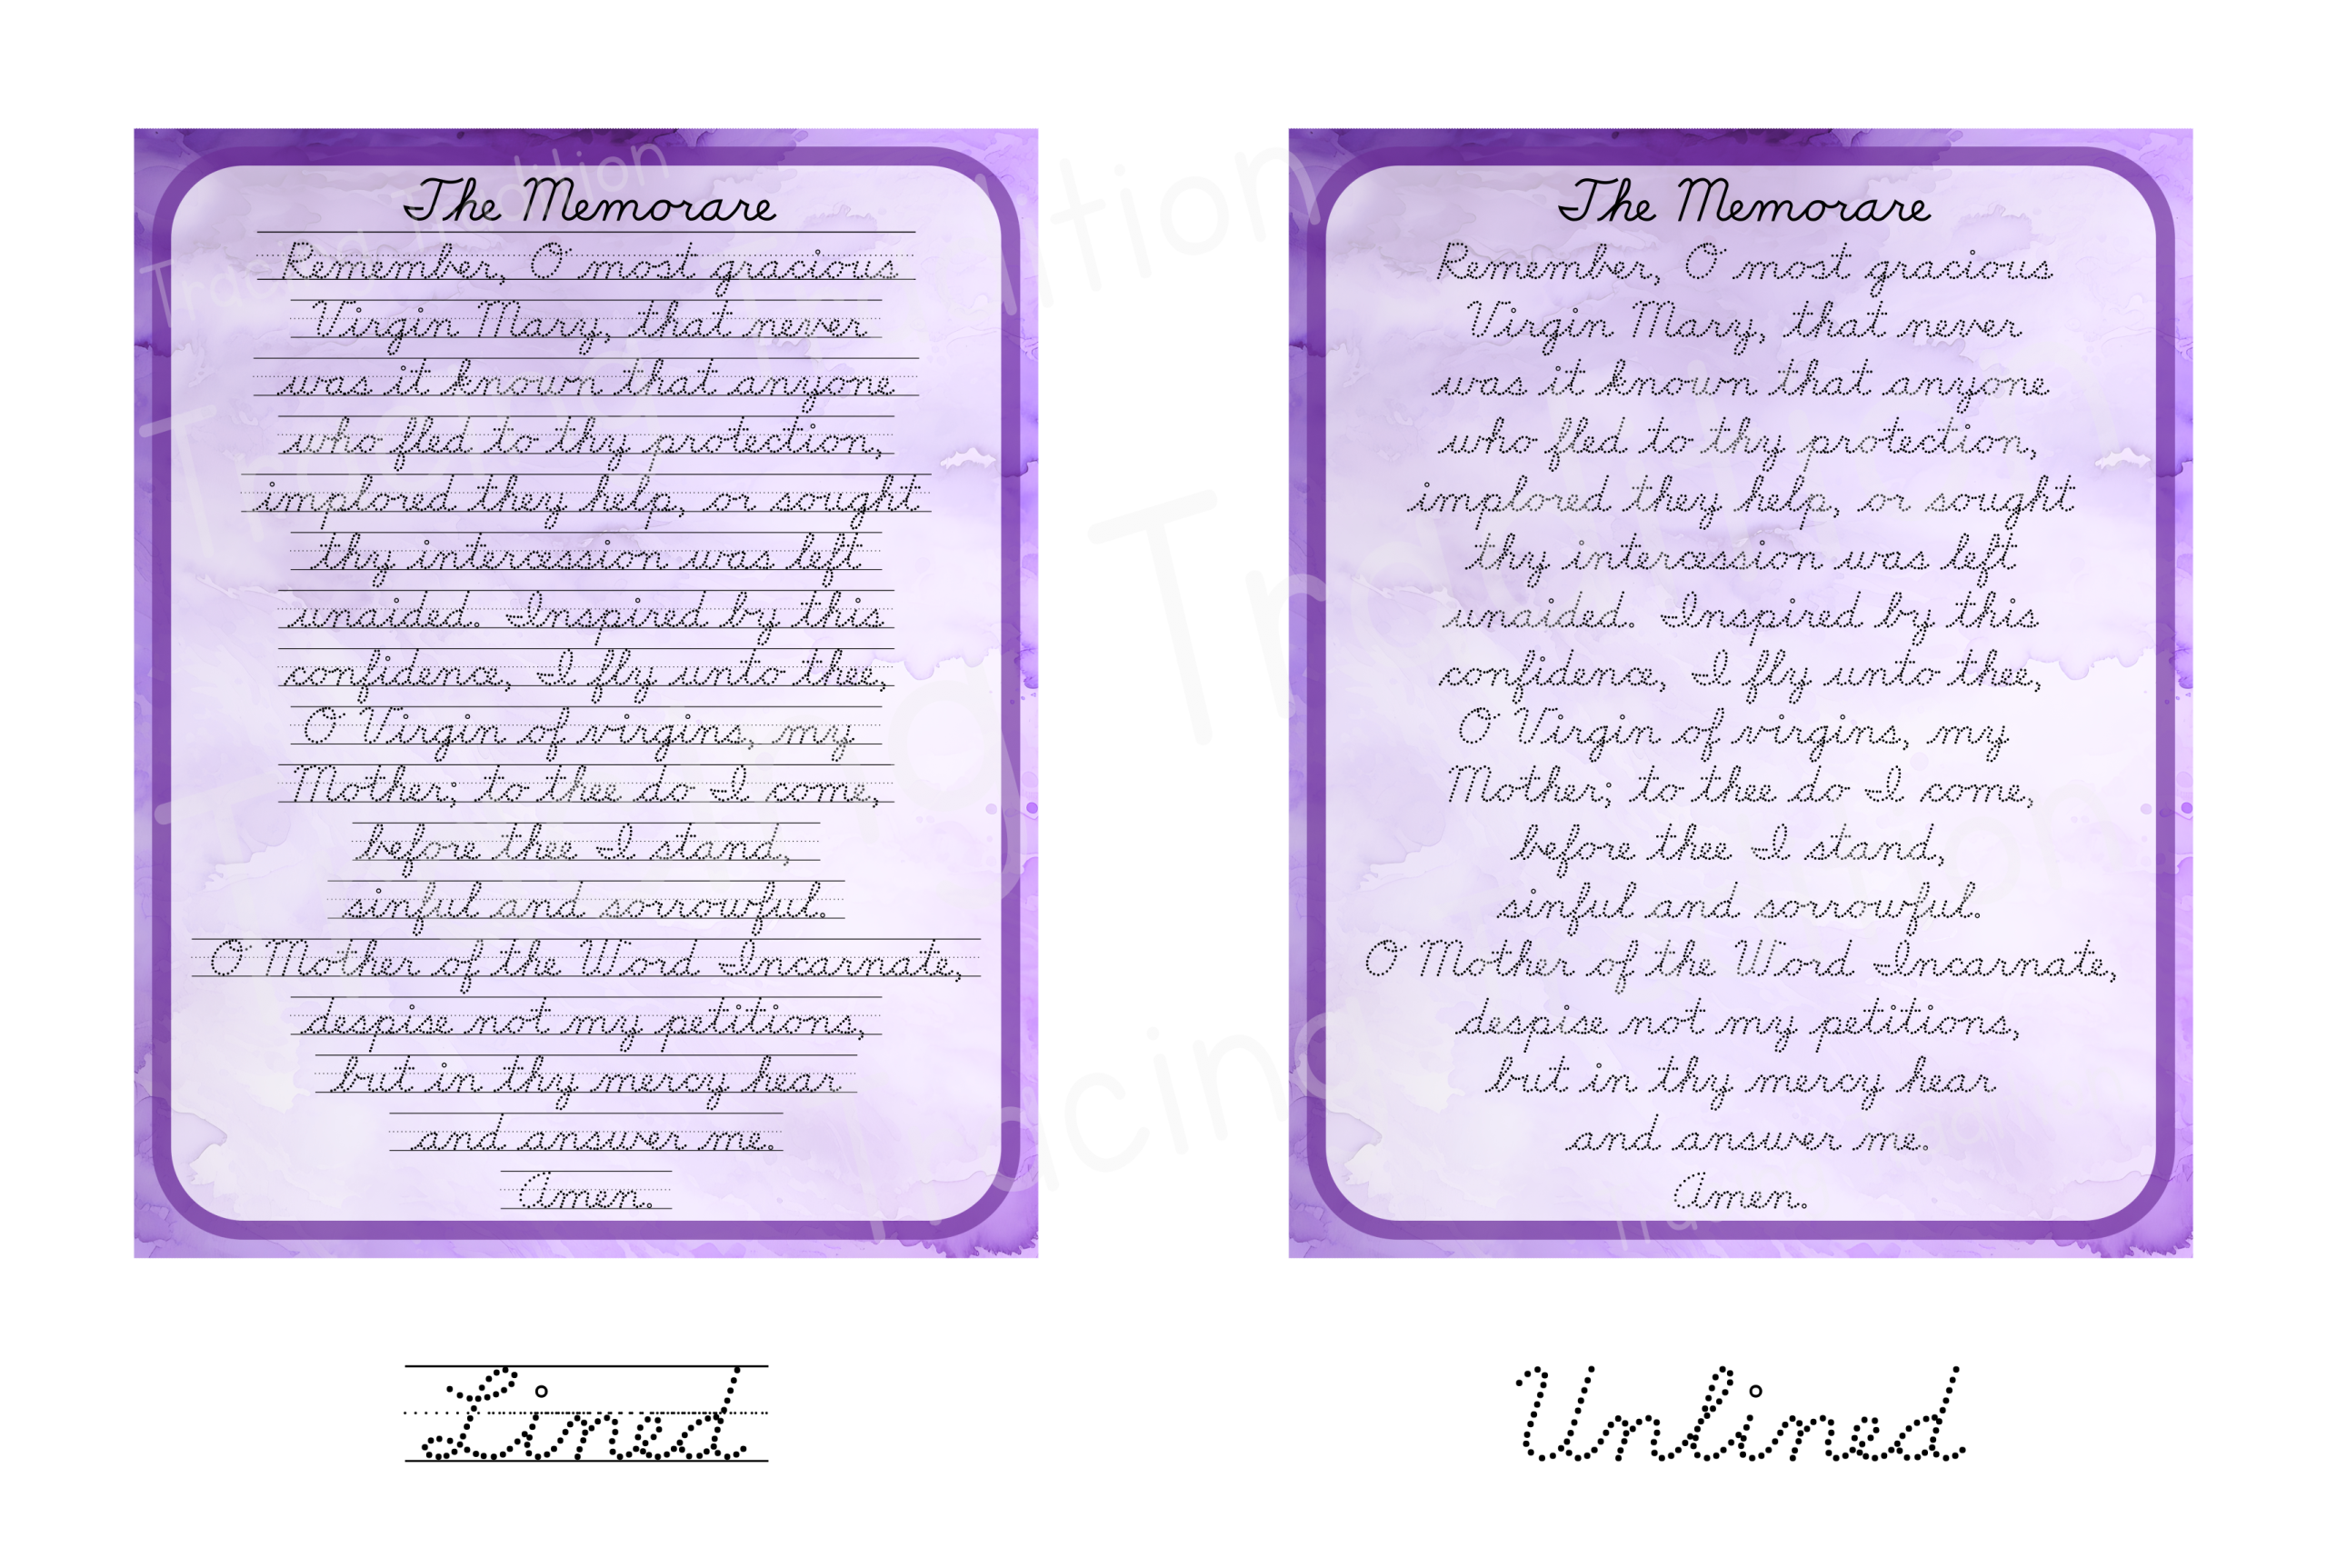 The Memorare
Remember, O most gracious
Virgin Mary, that never
was it known that anyone
who fled to thy protection,
implored they help, or sought
thy intercession was left
unaided. Inspired by this
confidence, I fly unto thee,
O Virgin of virgins, my
Mother; to thee do I come,
before thee I stand,
sinful and sorrowful.
O Mother of the Word Incarnate,
despise not my petitions,
but in thy mercy hear
and answer me.
Amen.
Lined
The Memorare
Remember, O most gracious
Virgin Mary, that never
was it known that anyone
who fled to thy protection,
implored they help, or sought
thy intercession was left
unaided. Inspired by this
confidence, I fly unto thee,
O Virgin of virgins, my
Mother; to thee do I come,
before thee I stand,
sinful and sorrowful.
O Mother of the Word Incarnate,
despise not my petitions,
but in thy mercy hear
and answer me.
Amen.
Unlined
Tracing Tradition